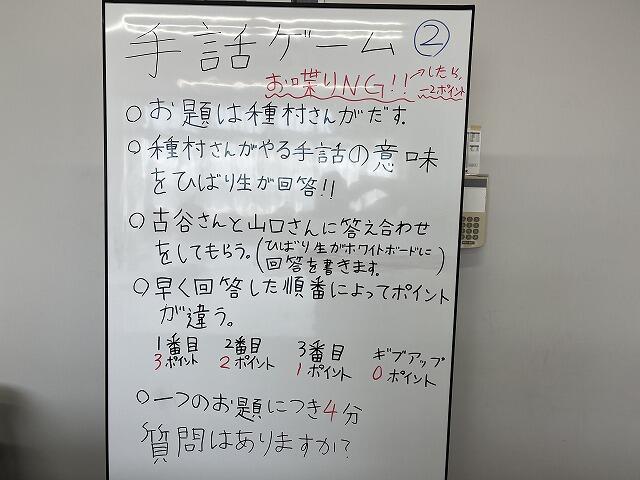 手話ゲーム ②
お喋りNG!! →したら、
-2ポイント
○お題は種村さんがだす。
○種村さんがやる手話の意味
をひばり生が回答!!
○古谷さんと山口さんに答え合わせ
をしてもらう。(ひばり生がホワイトボードに
回答を書きます。)
○早く回答した順番によってポイント
が違う。
1番目 2番目 3番目 ギブアップ
3ポイント 2ポイント 1ポイント 0ポイント
○一つのお題につき4分
質問はありますか?